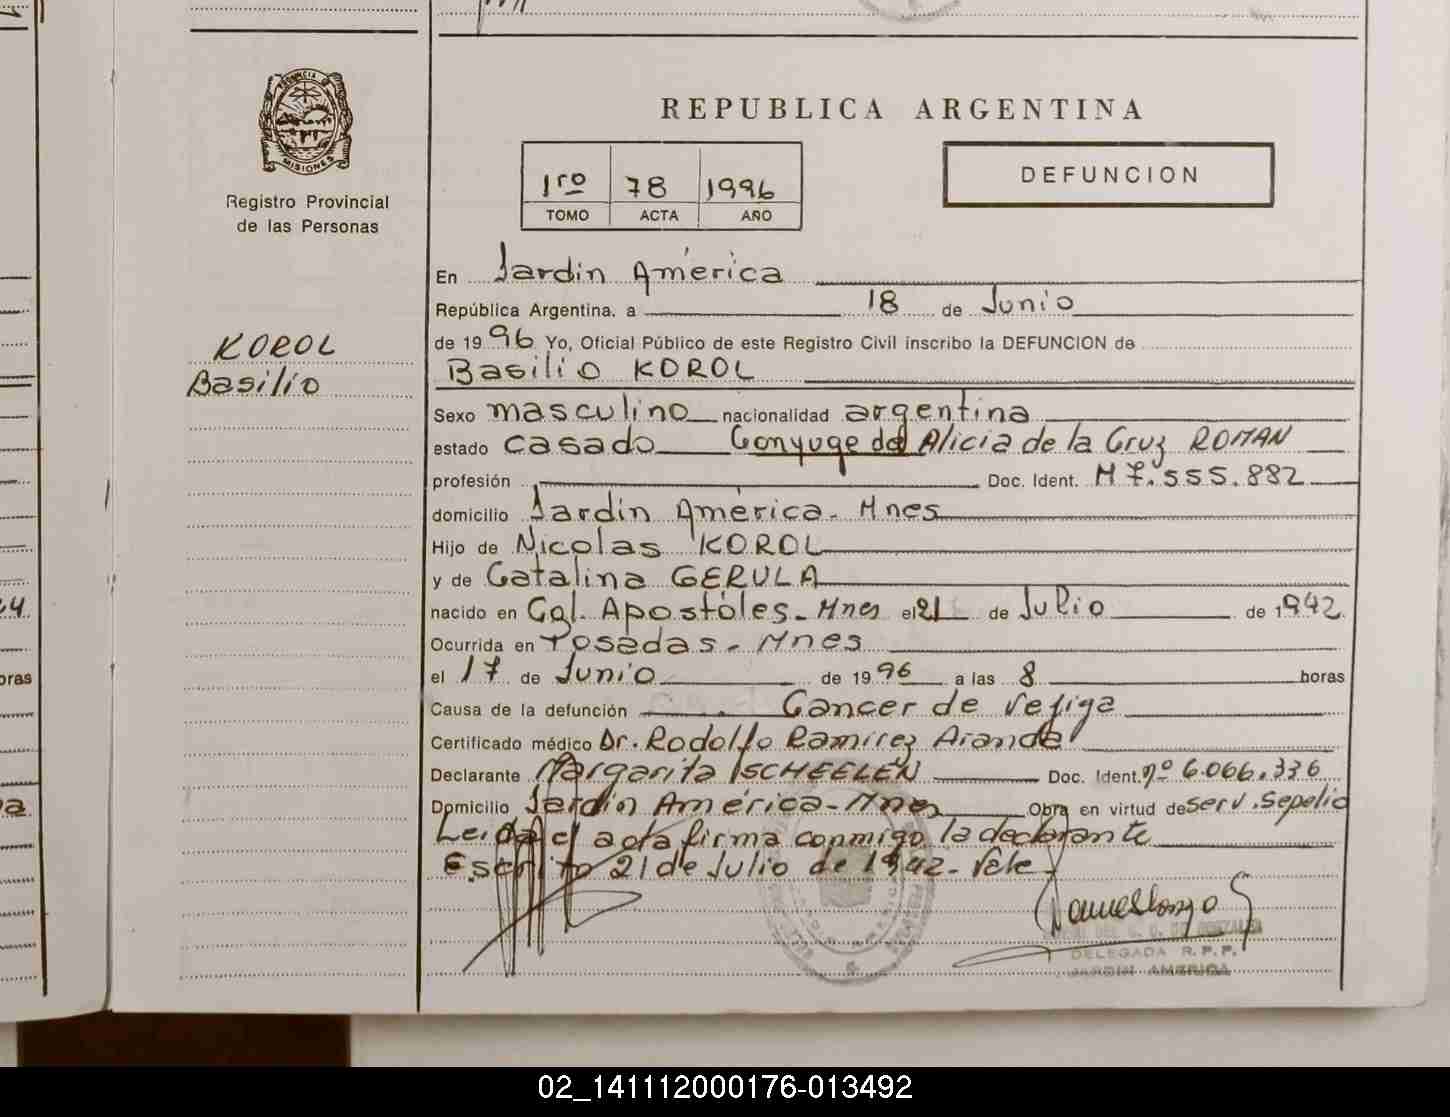 PROVINCIA DE
MISIONES
Registro Provincial
de las Personas
KOROL
Basilio
REPUBLICA ARGENTINA
1ro 78 1996
TOMO ACTA AÑO
DEFUNCION
En Jardin América
República Argentina, a 18 de Junio
de 1996 Yo, Oficial Público de este Registro Civil inscribo la DEFUNCION de
Basilio KOROL
Sexo masculino nacionalidad argentina
estado casado Conyuge de Alicia de la Cruz ROMAN
profesión Doc. Ident. M 7.555.882
domicilio Jardin América - Mnes
Hijo de Nicolas KOROL
y de Catalina GERULA
nacido en Col. Apostóles - Mnes el 21 de Julio de 1942
Ocurrida en Posadas - Mnes
el 17 de Junio de 1996 a las 8 horas
Causa de la defunción Cancer de vejiga
Certificado médico Dr. Rodolfo Ramirez Aranda
Declarante Margarita SCHEELEN Doc. Ident. nº 6.066.336
Domicilio Jardin América - Mnes Obra en virtud de serv. Sepelio
Leida el acta firma conmigo la declarante
Escrito 21 de Julio de 1942 - Vale
DELEGADA R.P.P.
JARDIN AMERICA
oras
02_141112000176-013492